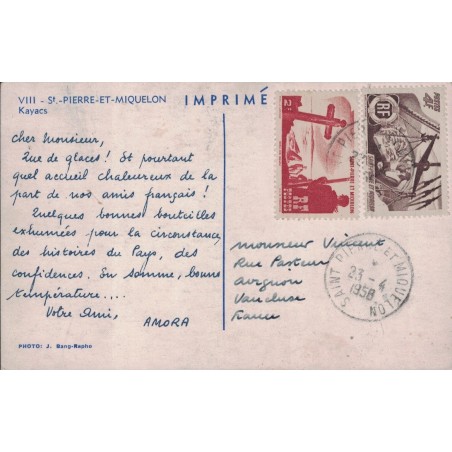 VIII - St.-PIERRE-ET-MIQUELON
Kayacs
IMPRIMÉ
Cher Monsieur,
Que de glaces ! Et pourtant
quel accueil chaleureux de la
part de nos amis français !
Quelques bonnes bouteilles
exhumées pour la circonstance,
des histoires du Pays, des
confidences. En somme, bonne
température....
Votre Ami,
AMORA
PHOTO: J. Bang-Raphe
2F
SAINT-PIERRE ET MIQUELON
POSTES
4F
RF
Monsieur Vincent
Rue Pasteur
Avignon
Vaucluse
France
SAINT PIERRE-ET-MIQUELON
23 - 4
1958